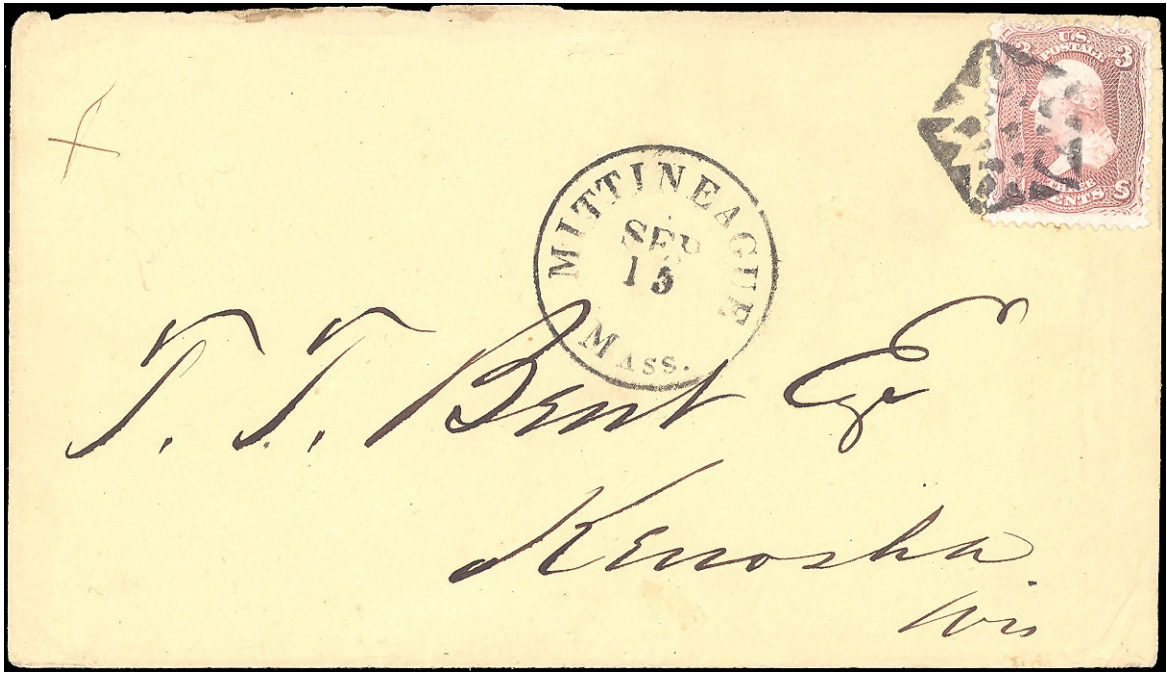 U.S.
POSTALE
3 3
THREE
CENTS
MITTINEAGUE
SEP
15
MASS.
T. T. Bent Esq
Kenosha
Wis